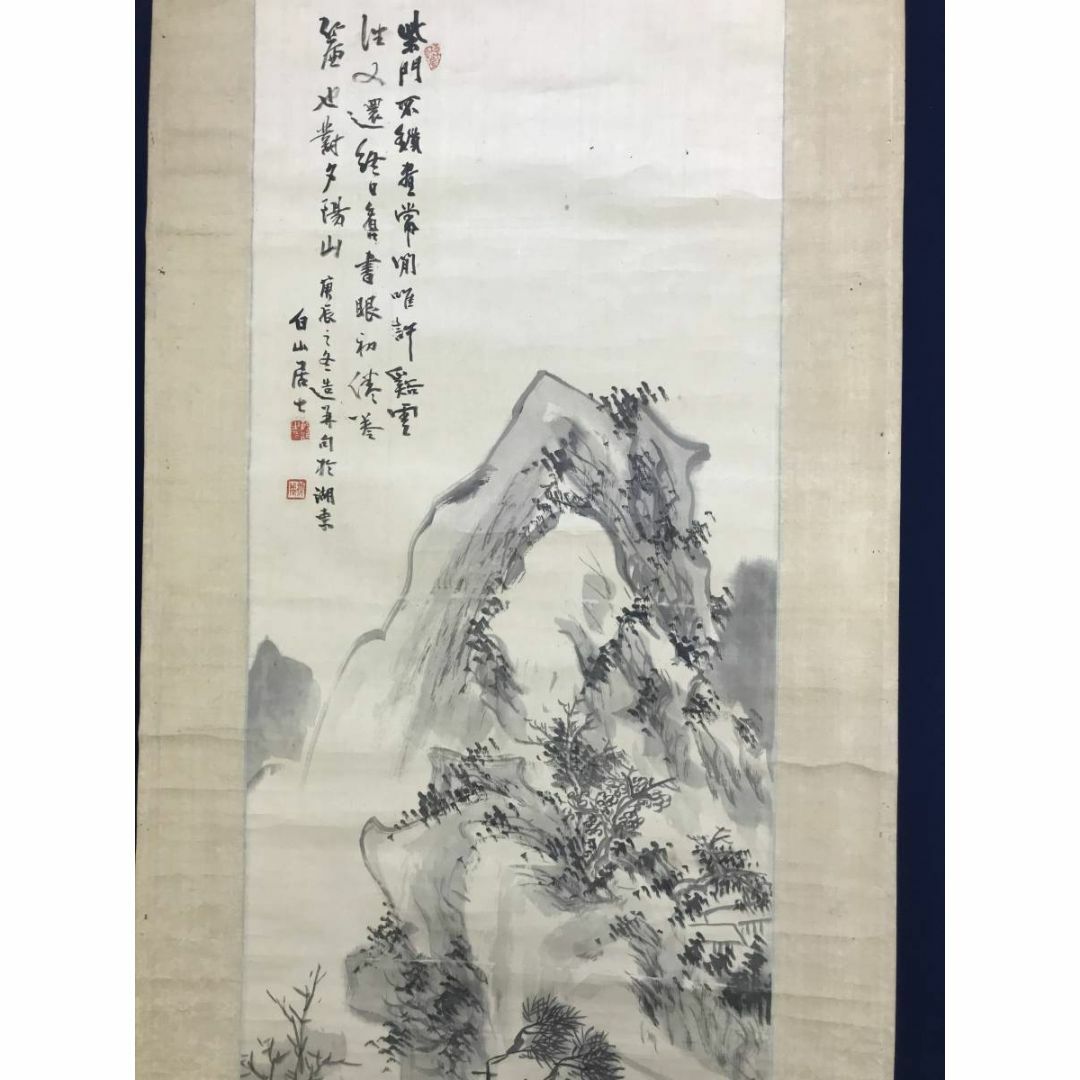 柴門不鎖晝常閒唯許谿雲
往又還終日舊書眼初倦卷
簾也對夕陽山
庚辰之冬造并句於湖東
白山居士